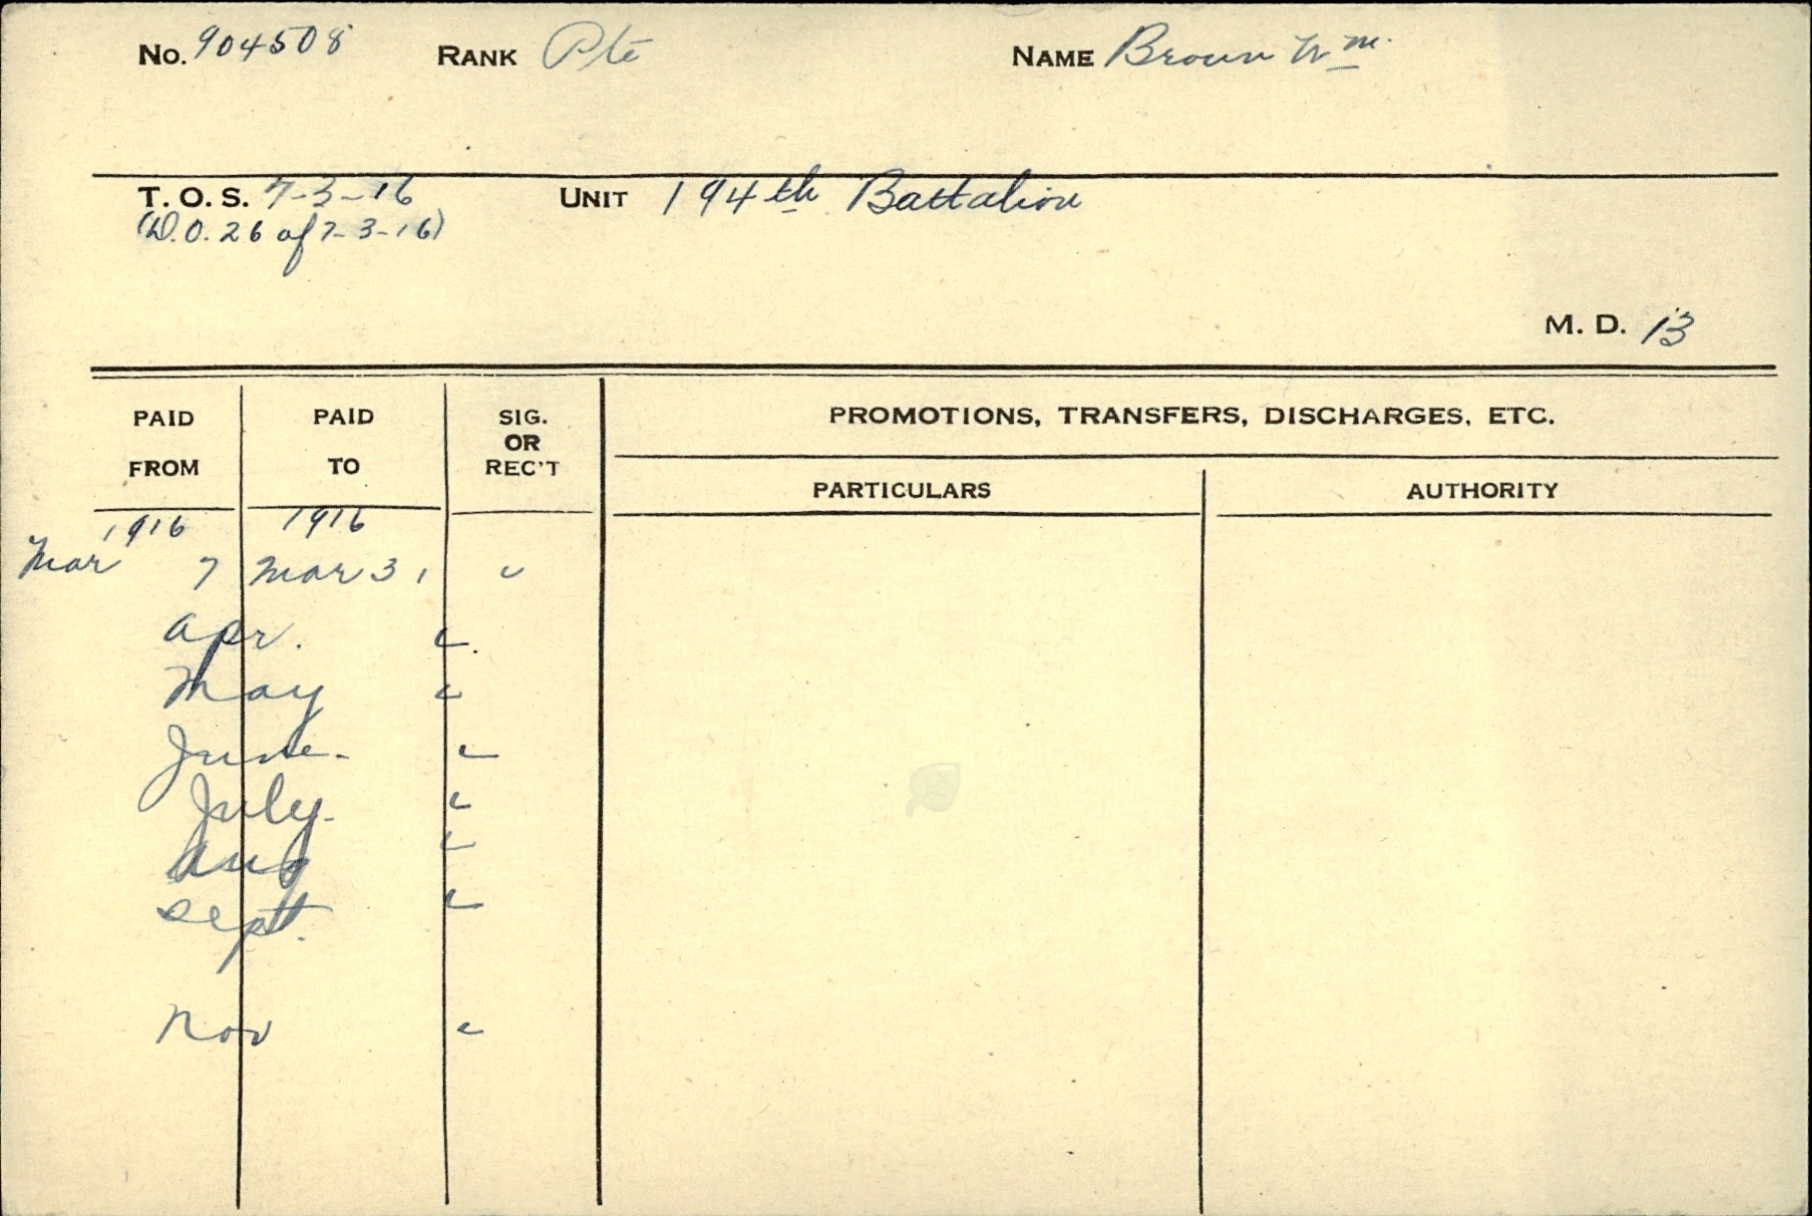 No. 904508 RANK Pte NAME Brown Wm.
T. O. S. 7-3-16 UNIT 194th Battalion
(D.O. 26 of 7-3-16)
M. D. 13
PAID FROM PAID TO SIG. OR REC'T PROMOTIONS, TRANSFERS, DISCHARGES, ETC.
PARTICULARS AUTHORITY
1916 1916
Mar 7 Mar 31
Apr.
May
June.
July.
Aug
Sept.
Nov